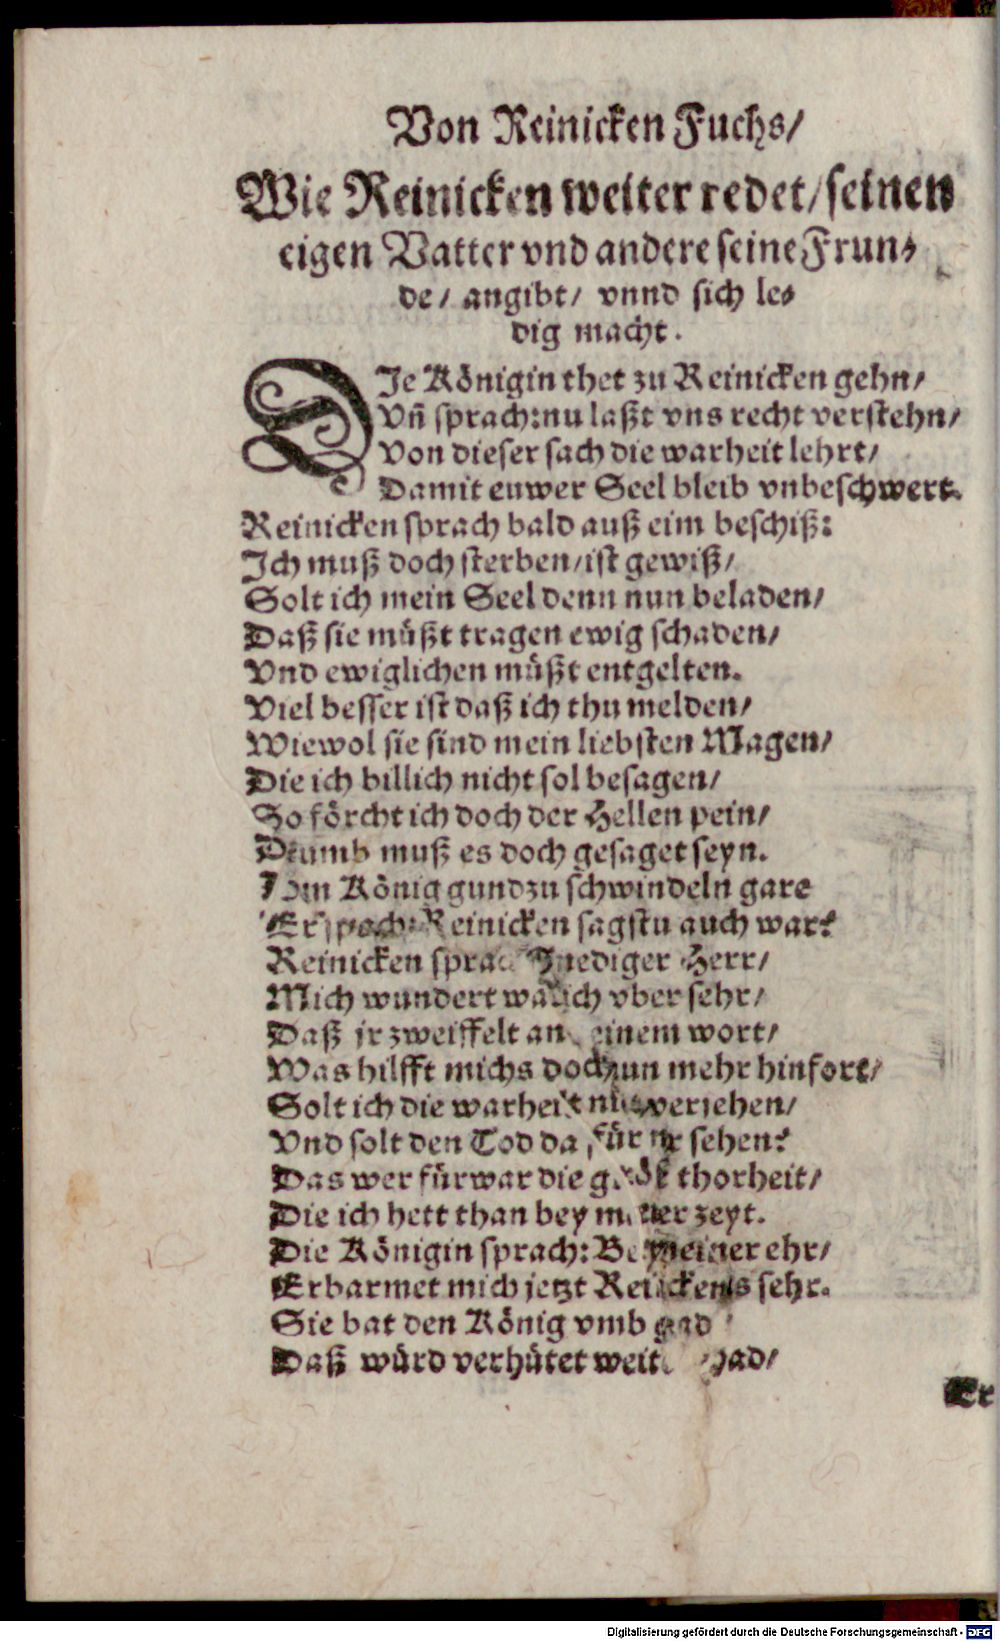 Von Reinicken Fuchs/
Wie Reinicken weiter redet/ seinen
eigen Vatter vnd andere seine Frun⸗
de/ angibt/ vnnd sich le⸗
dig macht.
DJe Königin thet zu Reinicken gehn/
Vñ sprach: nu laßt vns recht verstehn/
Von dieser sach die warheit lehrt/
Damit euwer Seel bleib vnbeschwert.
Reinicken sprach bald auß eim beschiß:
Jch muß doch sterben/ ist gewiß/
Solt ich mein Seel denn nun beladen/
Daß sie müßt tragen ewig schaden/
Vnd ewiglichen müßt entgelten.
Viel besser ist daß ich thu melden/
Wiewol sie sind mein liebsten Magen/
Die ich billich nicht sol besagen/
So förcht ich doch der Hellen pein/
Drumb muß es doch gesaget seyn.
Dem König gund zu schwindeln gare
Er sprach: Reinicken sagstu auch war?
Reinicken sprach Gnediger Herr/
Mich wundert warlich vber sehr/
Daß jr zweiffelt an meinem wort/
Was hilfft michs doch nun mehr hinfort/
Solt ich die warheit nit verjehen/
Vnd solt den Tod da für mir sehen?
Das wer fürwar die gröst thorheit/
Die ich hett than bey meiner zeyt.
Die Königin sprach: Bey meiner ehr/
Erbarmet mich jetzt Reinickens sehr.
Sie bat den König vmb gnad
Daß würd verhütet weiter
Er
Digitalisierung gefördert durch die Deutsche Forschungsgemeinschaft - DFG